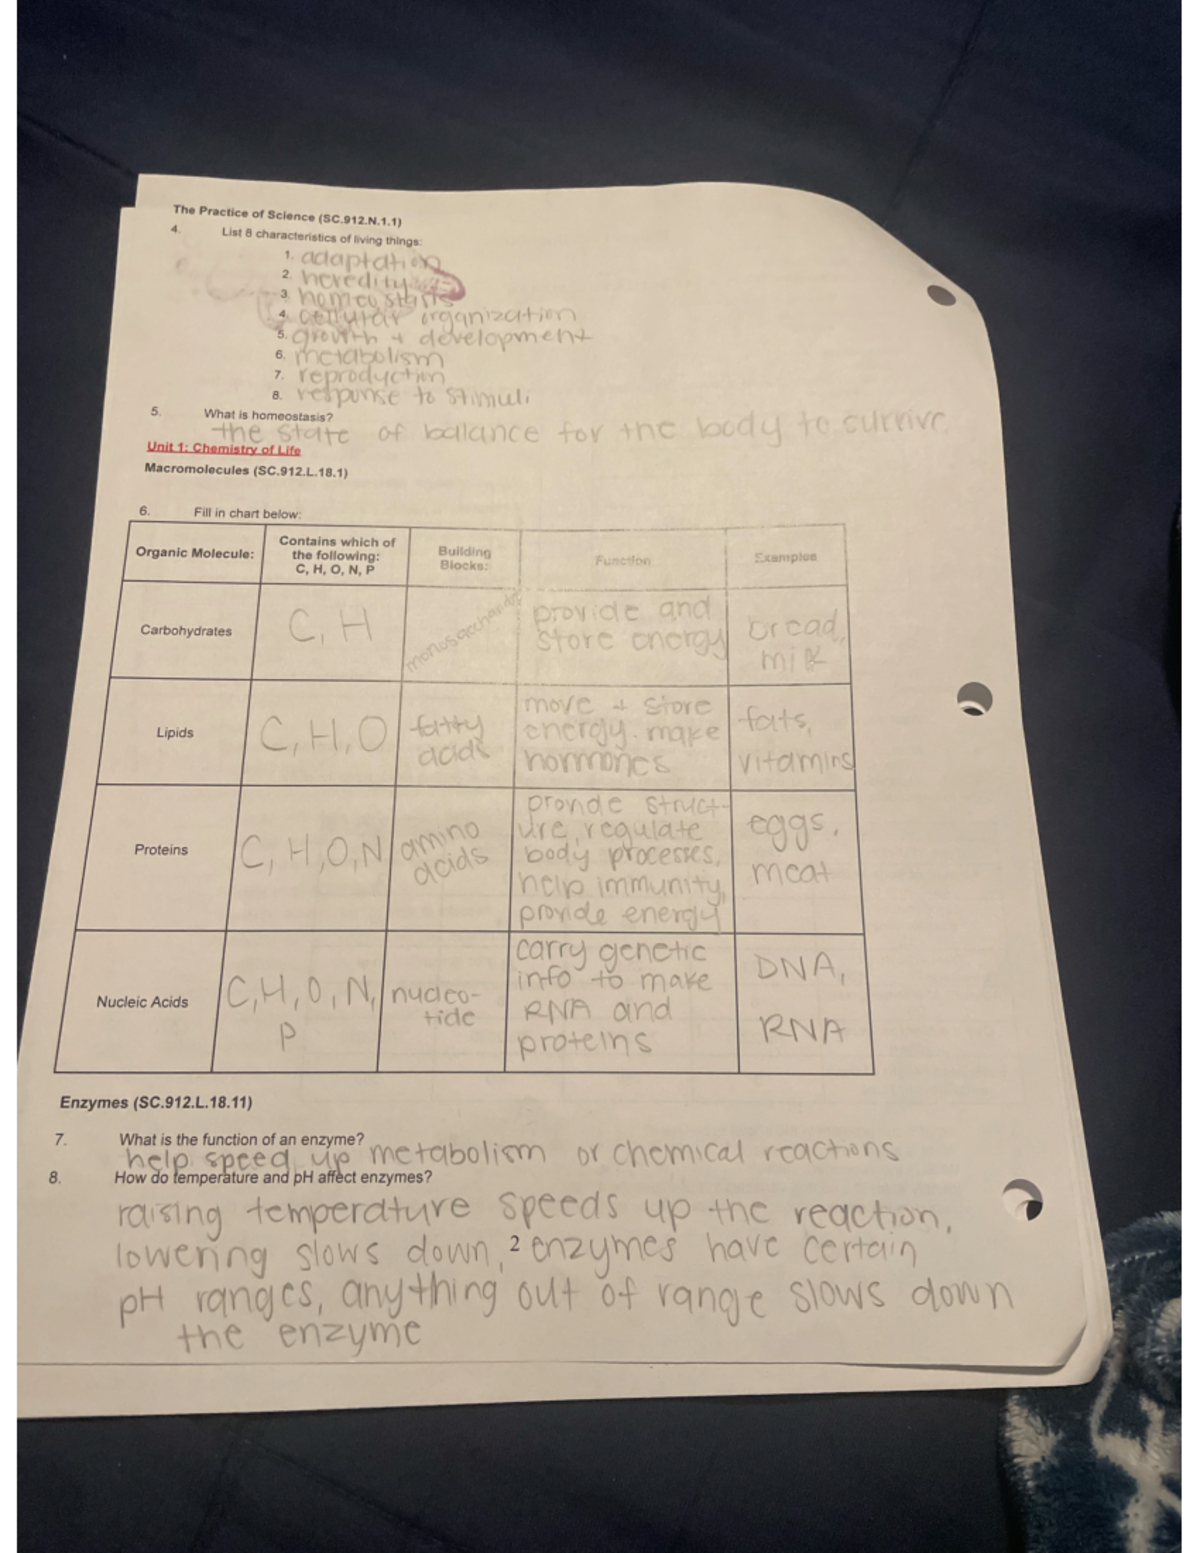 The Practice of Science (SC.912.N.1.1)
4. List 8 characteristics of living things:
1. adaptation
2. heredity
3. homeostasis
4. cellular organization
5. growth + development
6. metabolism
7. reproduction
8. response to stimuli
5. What is homeostasis?
the state of balance for the body to survive
Unit 1: Chemistry of Life
Macromolecules (SC.912.L.18.1)
6. Fill in chart below:
Organic Molecule:
Contains which of
the following:
C, H, O, N, P
Building
Blocks:
Function
Examples
Carbohydrates
C, H
monosaccharides
provide and
store energy
bread,
milk
Lipids
C, H, O
fatty
acids
move + store
energy. make
hormones
fats,
vitamins
Proteins
C, H, O, N
amino
acids
provide struct-
ure, regulate
body processes,
help immunity,
provide energy
eggs,
meat
Nucleic Acids
C, H, O, N,
P
nucleo-
tide
carry genetic
info to make
RNA and
proteins
DNA,
RNA
Enzymes (SC.912.L.18.11)
7. What is the function of an enzyme?
help speed up metabolism or chemical reactions
8. How do temperature and pH affect enzymes?
raising temperature speeds up the reaction,
lowering slows down, 2 enzymes have certain
pH ranges, anything out of range slows down
the enzyme